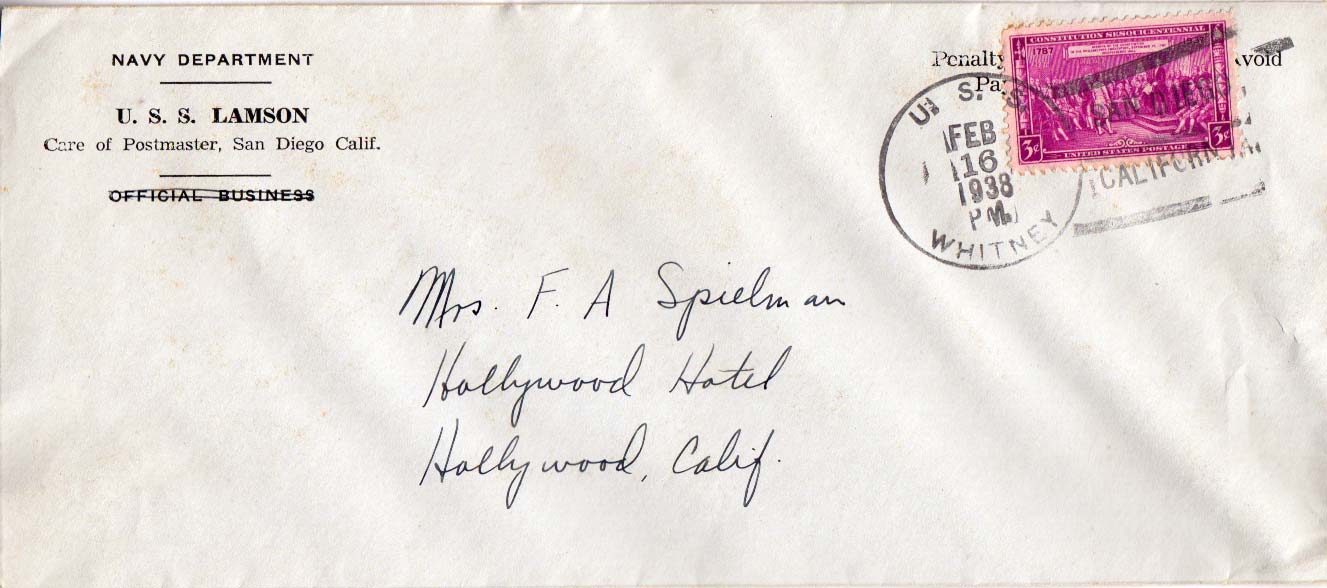 NAVY DEPARTMENT
U. S. S. LAMSON
Care of Postmaster, San Diego Calif.
OFFICIAL BUSINESS
Penalty
CONSTITUTION SESQUICENTENNIAL
1787
3¢ 3¢
UNITED STATES POSTAGE
U. S. S.
FEB
16
1938
P.M.
WHITNEY
SAN DIEGO
CALIFORNIA
Mrs. F. A Spielman
Hollywood Hotel
Hollywood, Calif.